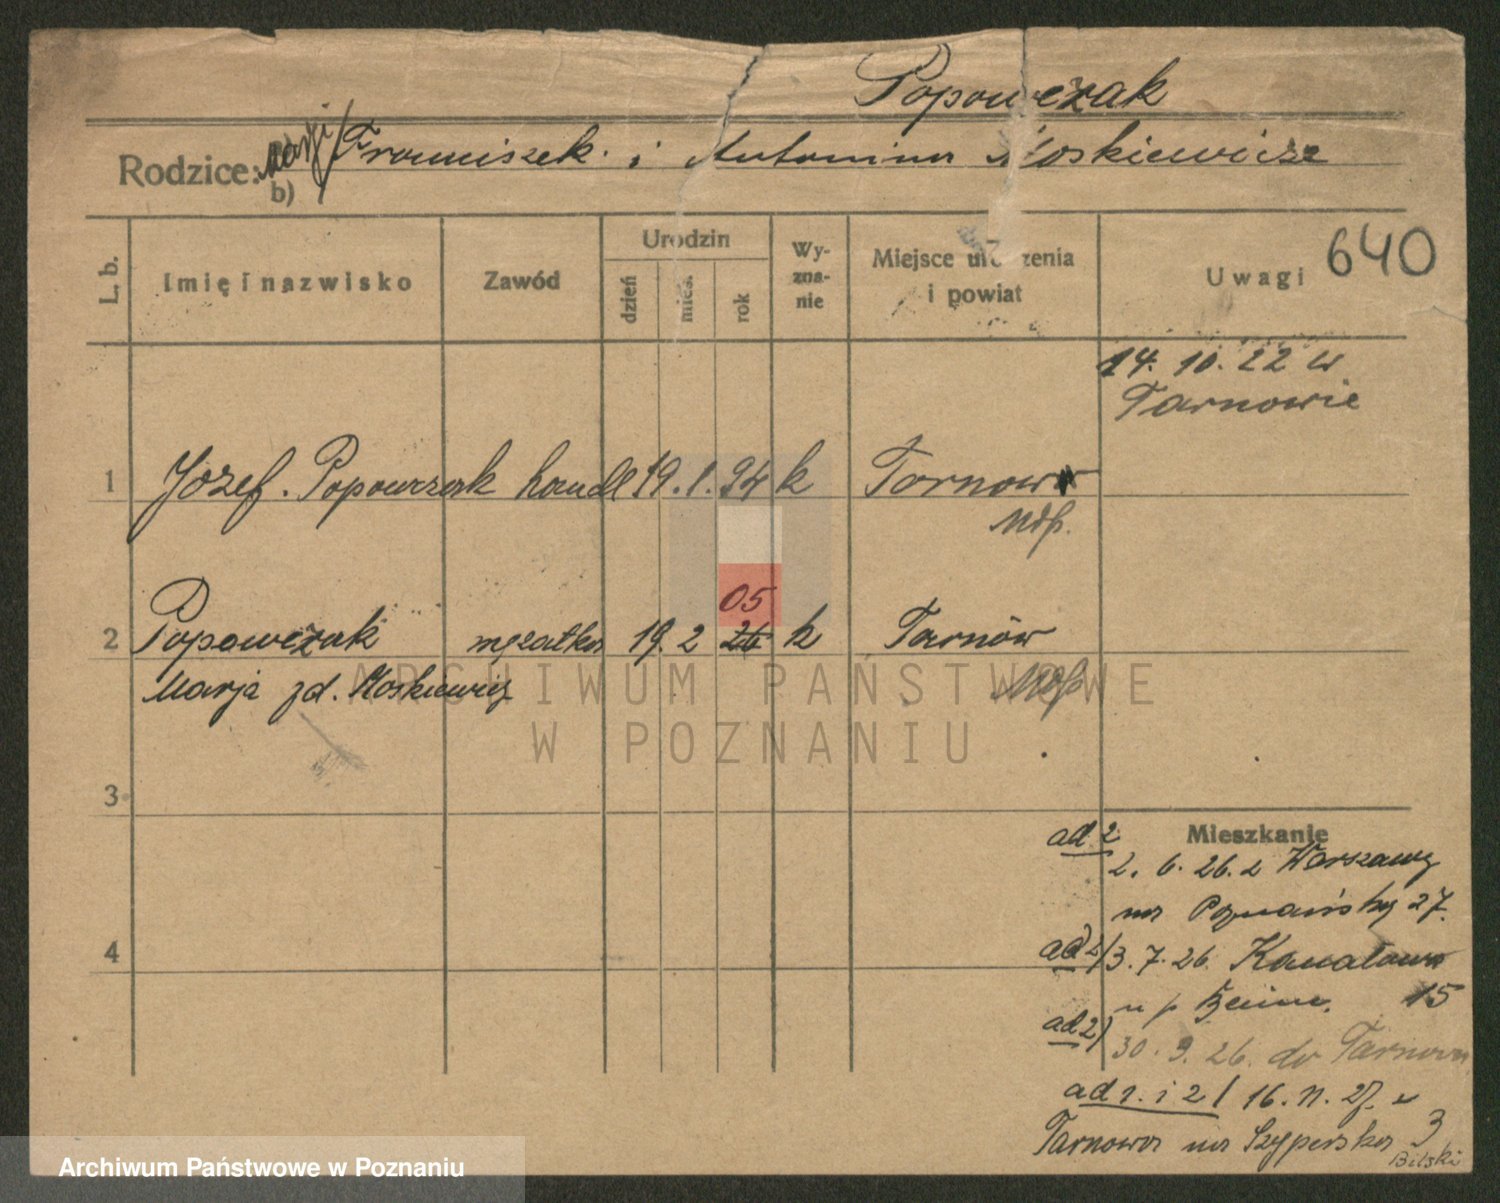 Popowczak
Rodzice: Marji / Franciszek i Antonina Moskiewicze
b)
L. b.
Imię i nazwisko
Zawód
Urodzin
dzień
mies.
rok
Wy-
zna-
nie
Miejsce urodzenia
i powiat
Uwagi
640
14. 10. 22 w
Tarnowie
1 Józef Popowczak handl 19. 1. 94 k Tarnow
Młp.
05
2 Popowczak mężatka 19. 2 26 k Tarnów
Marja zd. Moskiewicz Młp
3
4
ad 2 Mieszkanie
2. 6. 26. z Warszawy
na Poznańską 27.
ad 2/ 3. 7. 26. Kanałowa
15
ad 2) 30. 9. 26. do Tarnowa
ad 1. i 2/ 16. 11. 27. z
Tarnowa na Szyperska 3
Bilski
ARCHIWUM PAŃSTWOWE
W POZNANIU
Archiwum Państwowe w Poznaniu